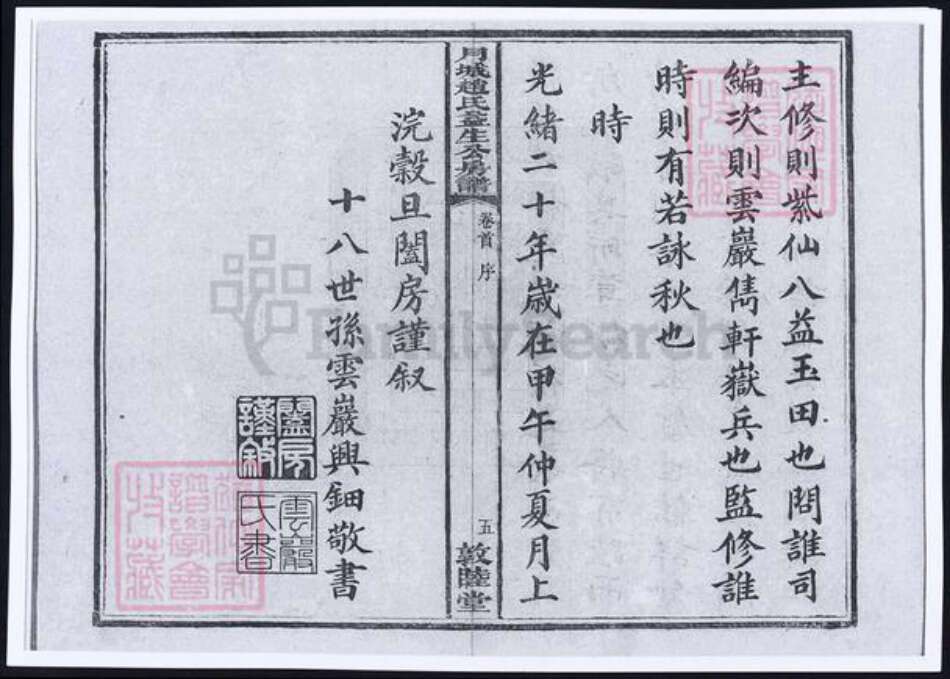 主修則紫仙八益玉田也問誰司
編次則雲巖雋軒嶽兵也監修誰
時則有若詠秋也
時
光緒二十年歲在甲午仲夏月上
月城趙氏益生公房譜
卷首 序
五
敦睦堂
浣穀旦闔房謹叙
十八世孫雲巖興鈿敬書
闔房謹敘
雲巖氏書
FamilySearch